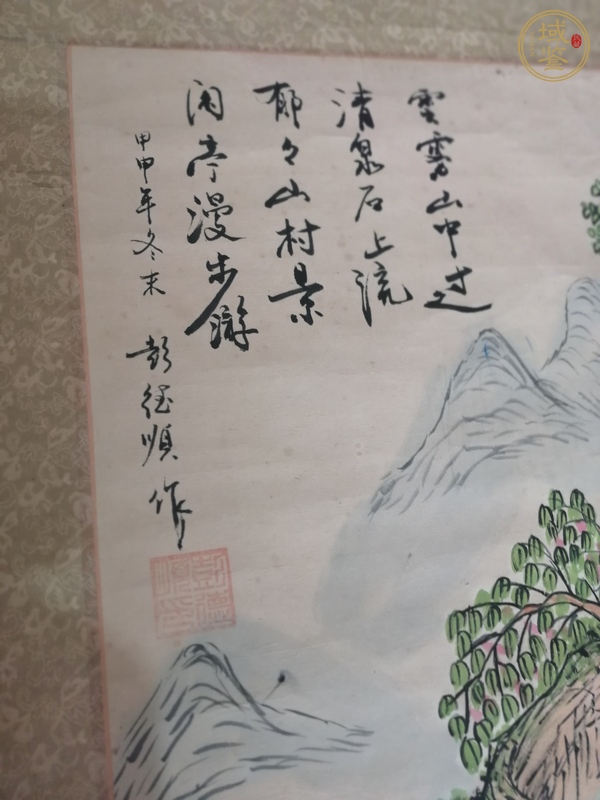 雲霧山中过
清泉石上流
郁々山村景
闲亭漫步游
甲申年冬末 彭德順作
彭德
順印
域鉴